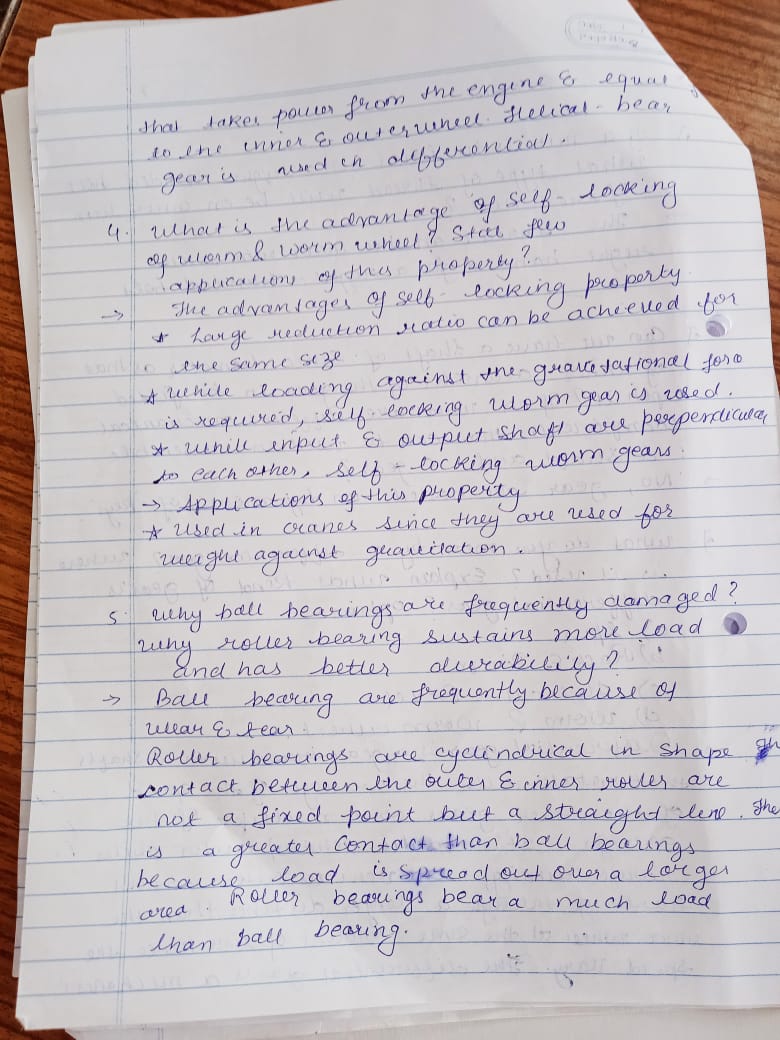 that takes power from the engine & equal
to the inner & outerwheel. Helical - bear
gear is used in differential.
4. What is the advantage of self - locking
of worm & worm wheel? State few
applications of this property?
→ The advantages of self - locking property
* Large reduction ratio can be acheeved for
the same size
* While loading against the gravitational force
is required, self - locking worm gear is used.
* While input & output shaft are perpendicular
to each other, self - locking worm gears.
→ Applications of this property
* Used in cranes since they are used for
weight against gravitation.
5. Why ball bearings are frequently damaged?
Why roller bearing sustains more load
and has better durability?
→ Ball bearing are frequently because of
wear & tear
Roller bearings are cyclindrical in shape
contact between the outer & inner roller are
not a fixed point but a straight line. The
is a greater contact than ball bearings
because load is spread out over a larger
area. Roller bearings bear a much load
than ball bearing.